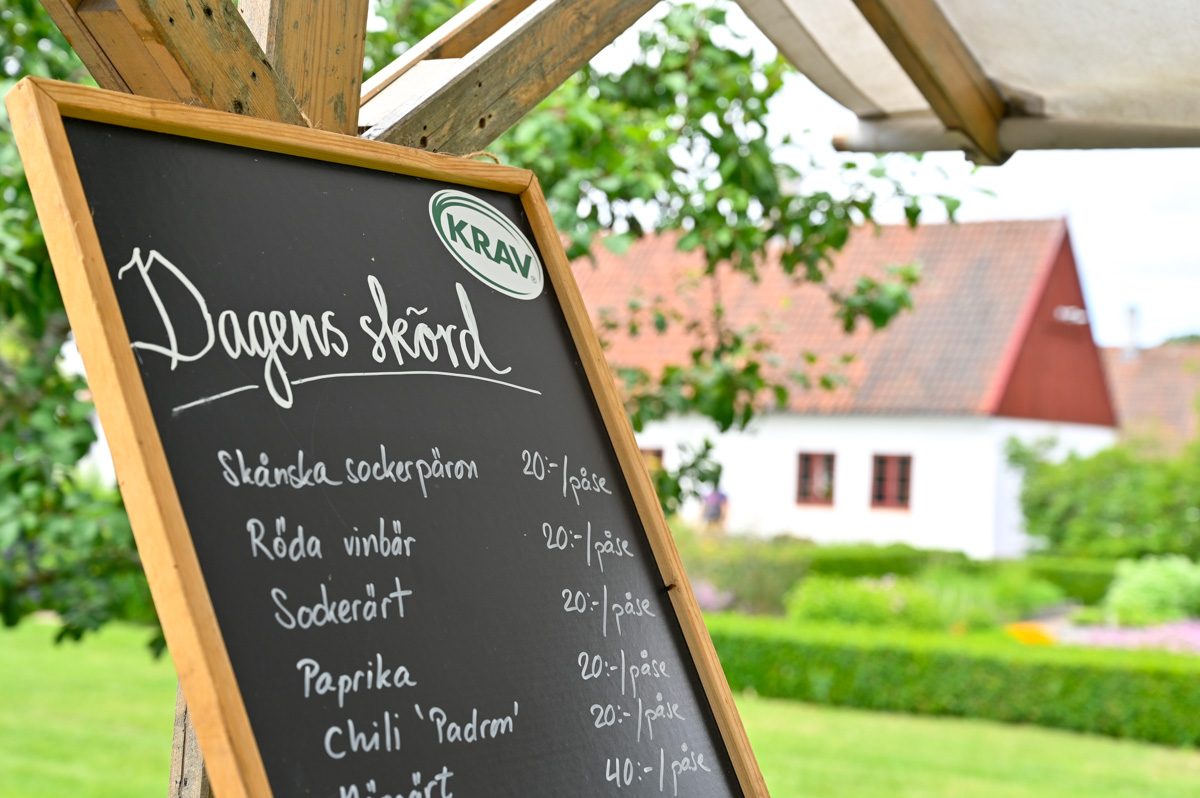 KRAV
Dagens skörd
Skånska sockerpäron 20:-/påse
Röda vinbär 20:-/påse
Sockerärt 20:-/påse
Paprika 20:-/påse
Chili 'Padron' 20:-/påse
40:-/påse